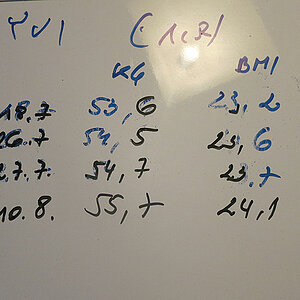 KG BMI
18.7 53,6 23,2
26.7 54,5 23,6
27.7. 54,7 23,7
10.8. 55,7 24,1